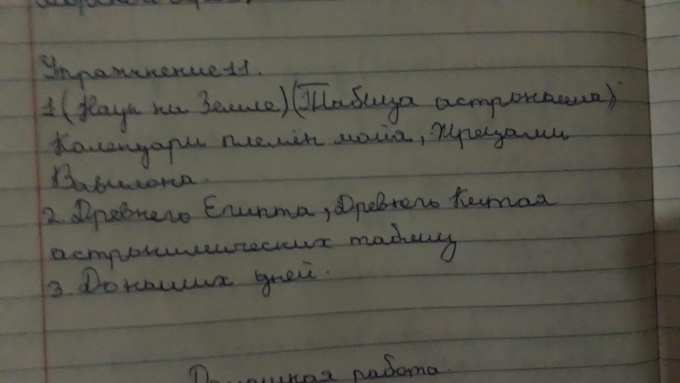 Упражнение 11.
1 (Наук на Земле) (Таблица астронома)
Календари племён майа, Жрецами
Вавилона.
2. Древнего Египта, Древнего Китая
астрономических таблиц
3. До наших дней.
Домашная работа